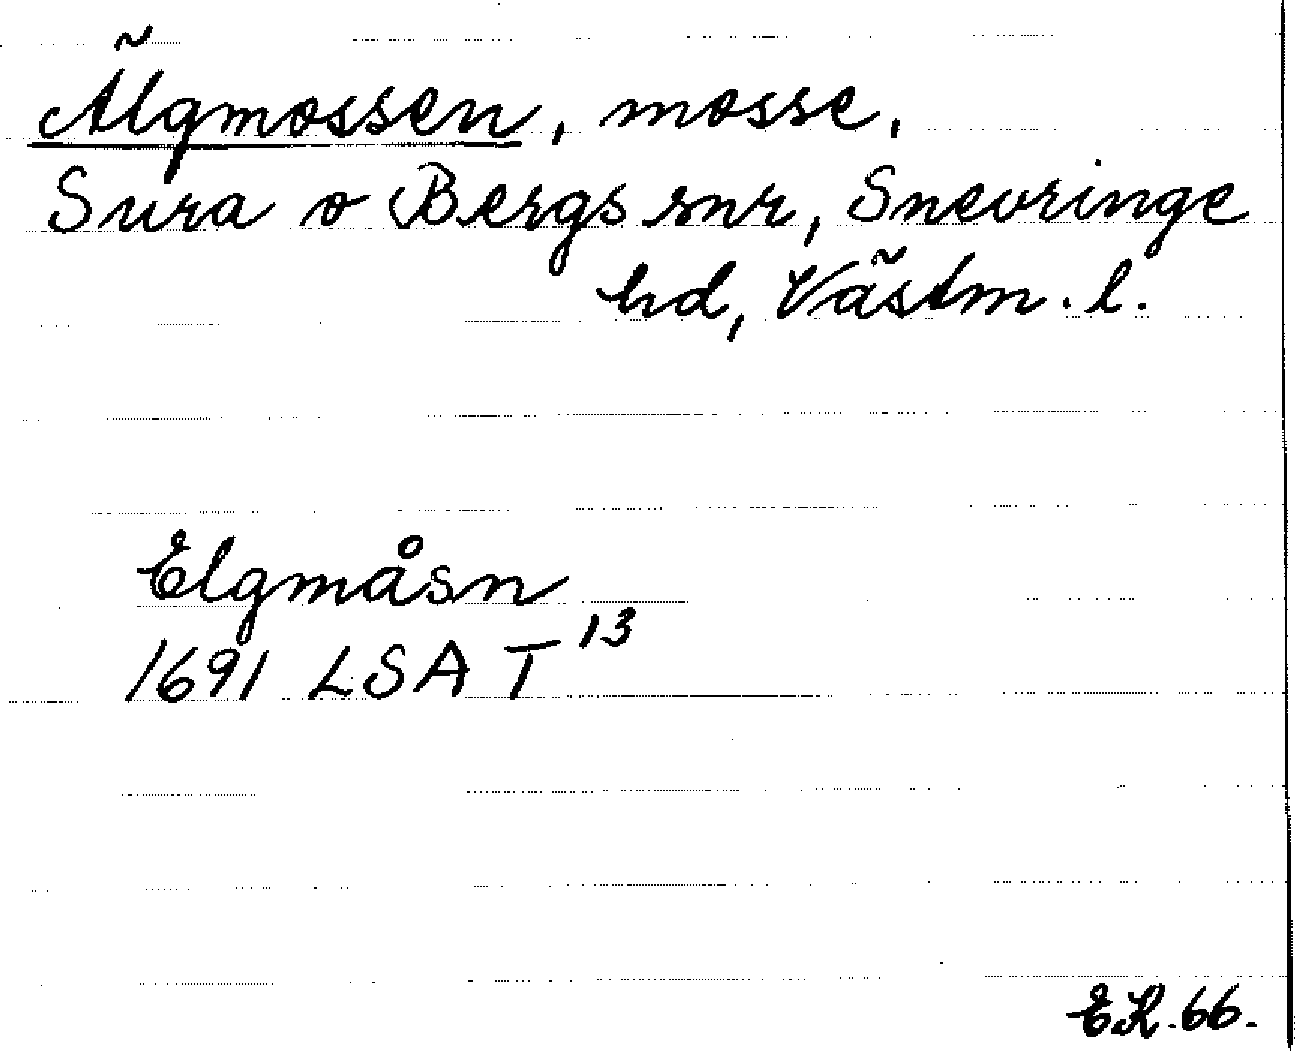 Älgmossen, mosse,
Sura o Bergs snr, Snevringe
hd, Västm. l.
Elgmåsn
1691 LSA T 13
E.K. 66.